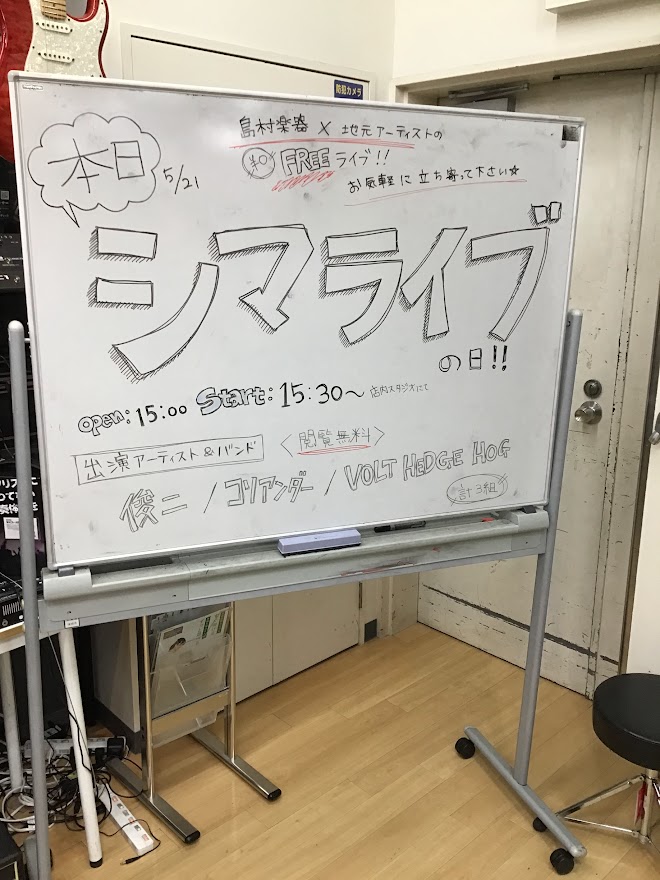 防犯カメラ
本日
5/21
島村楽器 × 地元アーティストの
FREE ライブ!!
お気軽に立ち寄って下さい☆
シマライブ
の日!!
open: 15:00 Start: 15:30〜 店内スタジオにて
出演アーティスト&バンド
〈閲覧無料〉
俊二 / コリアンダー / VOLT HEDGE HOG
計3組